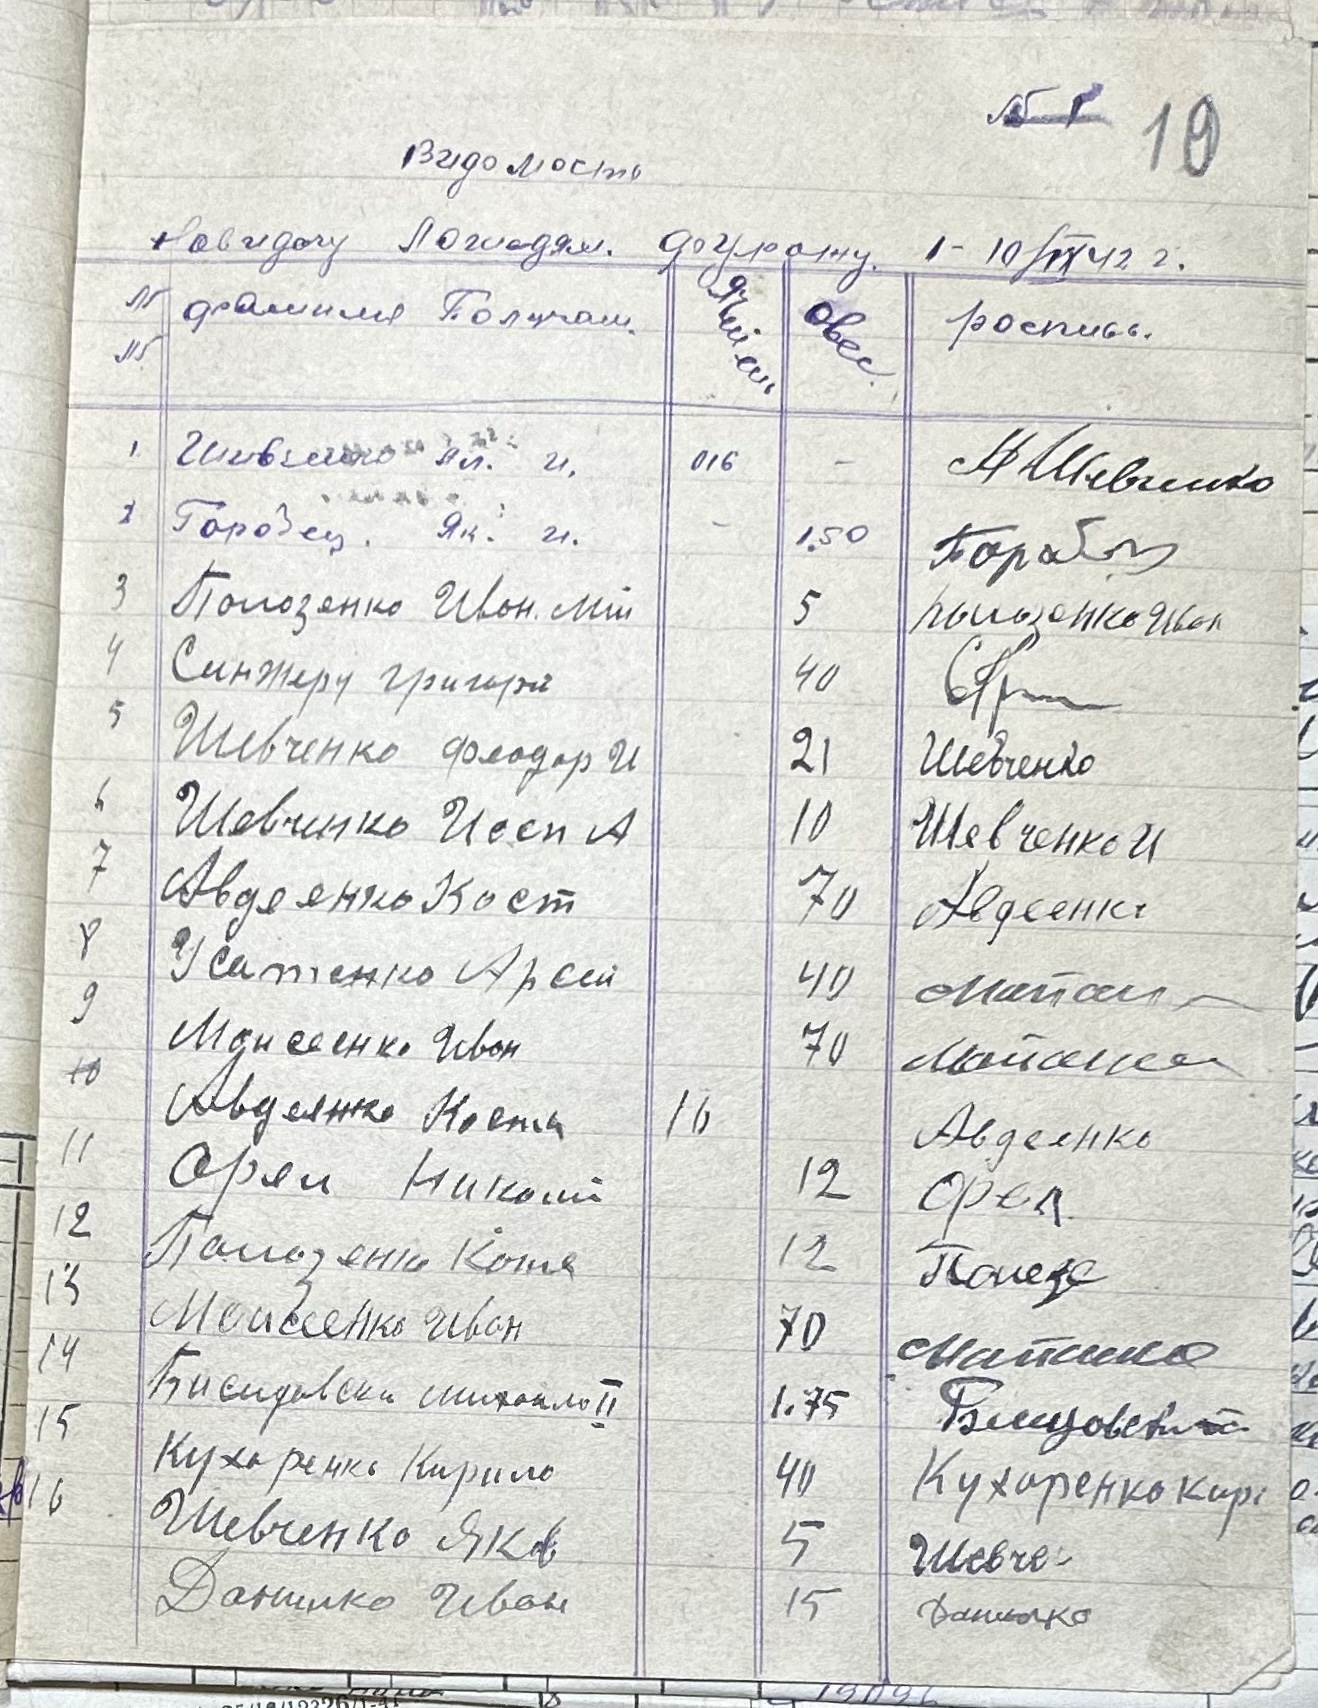 № 1 19
Видомость
На видачу Лошадям. фуражу. 1-10/III 42 г.
№ № фамилия Получаш. Ячмень овес роспись.
1 Шевченко Ал. И. 016 - А Шевченко
2 Горобец. Як. И. - 1.50 Горобец
3 Полозенко Иван. Мит 5 Полозенко Иван
4 Синжеру Григорий 40
5 Шевченко Феодор И 21 Шевченко
6 Шевчинко Иосп А 10 Шевченко И
7 Авдеянко Кост 70 Авдеенко
8 Усатенко Арсен 40
9 Моисеенко Иван 70
10 Авдеянко Костя 16 Авделнко
11 Орял Николай 12 Орел
12 Полозенко Костя 12 Полезе
13 Моисеенко Иван 70
14 Бисидовски Михаило II 1.75
15 Кухоренко Кирило 40 Кухоренко Кир
16 Шевченко Яков 5 Шевче
Данилко Иван 15 Данилко